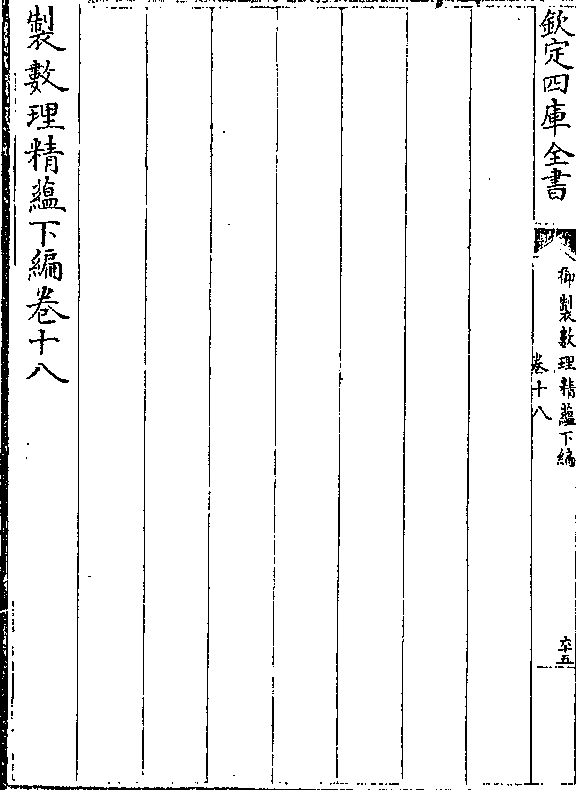 欽定四庫全書
御製數理精藴下編
卷十八
六十五
製數理精藴下編卷十八